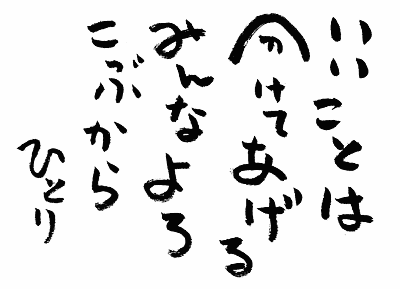 いいことは
分けてあげる
みんなよろ
こぶから
ひとり